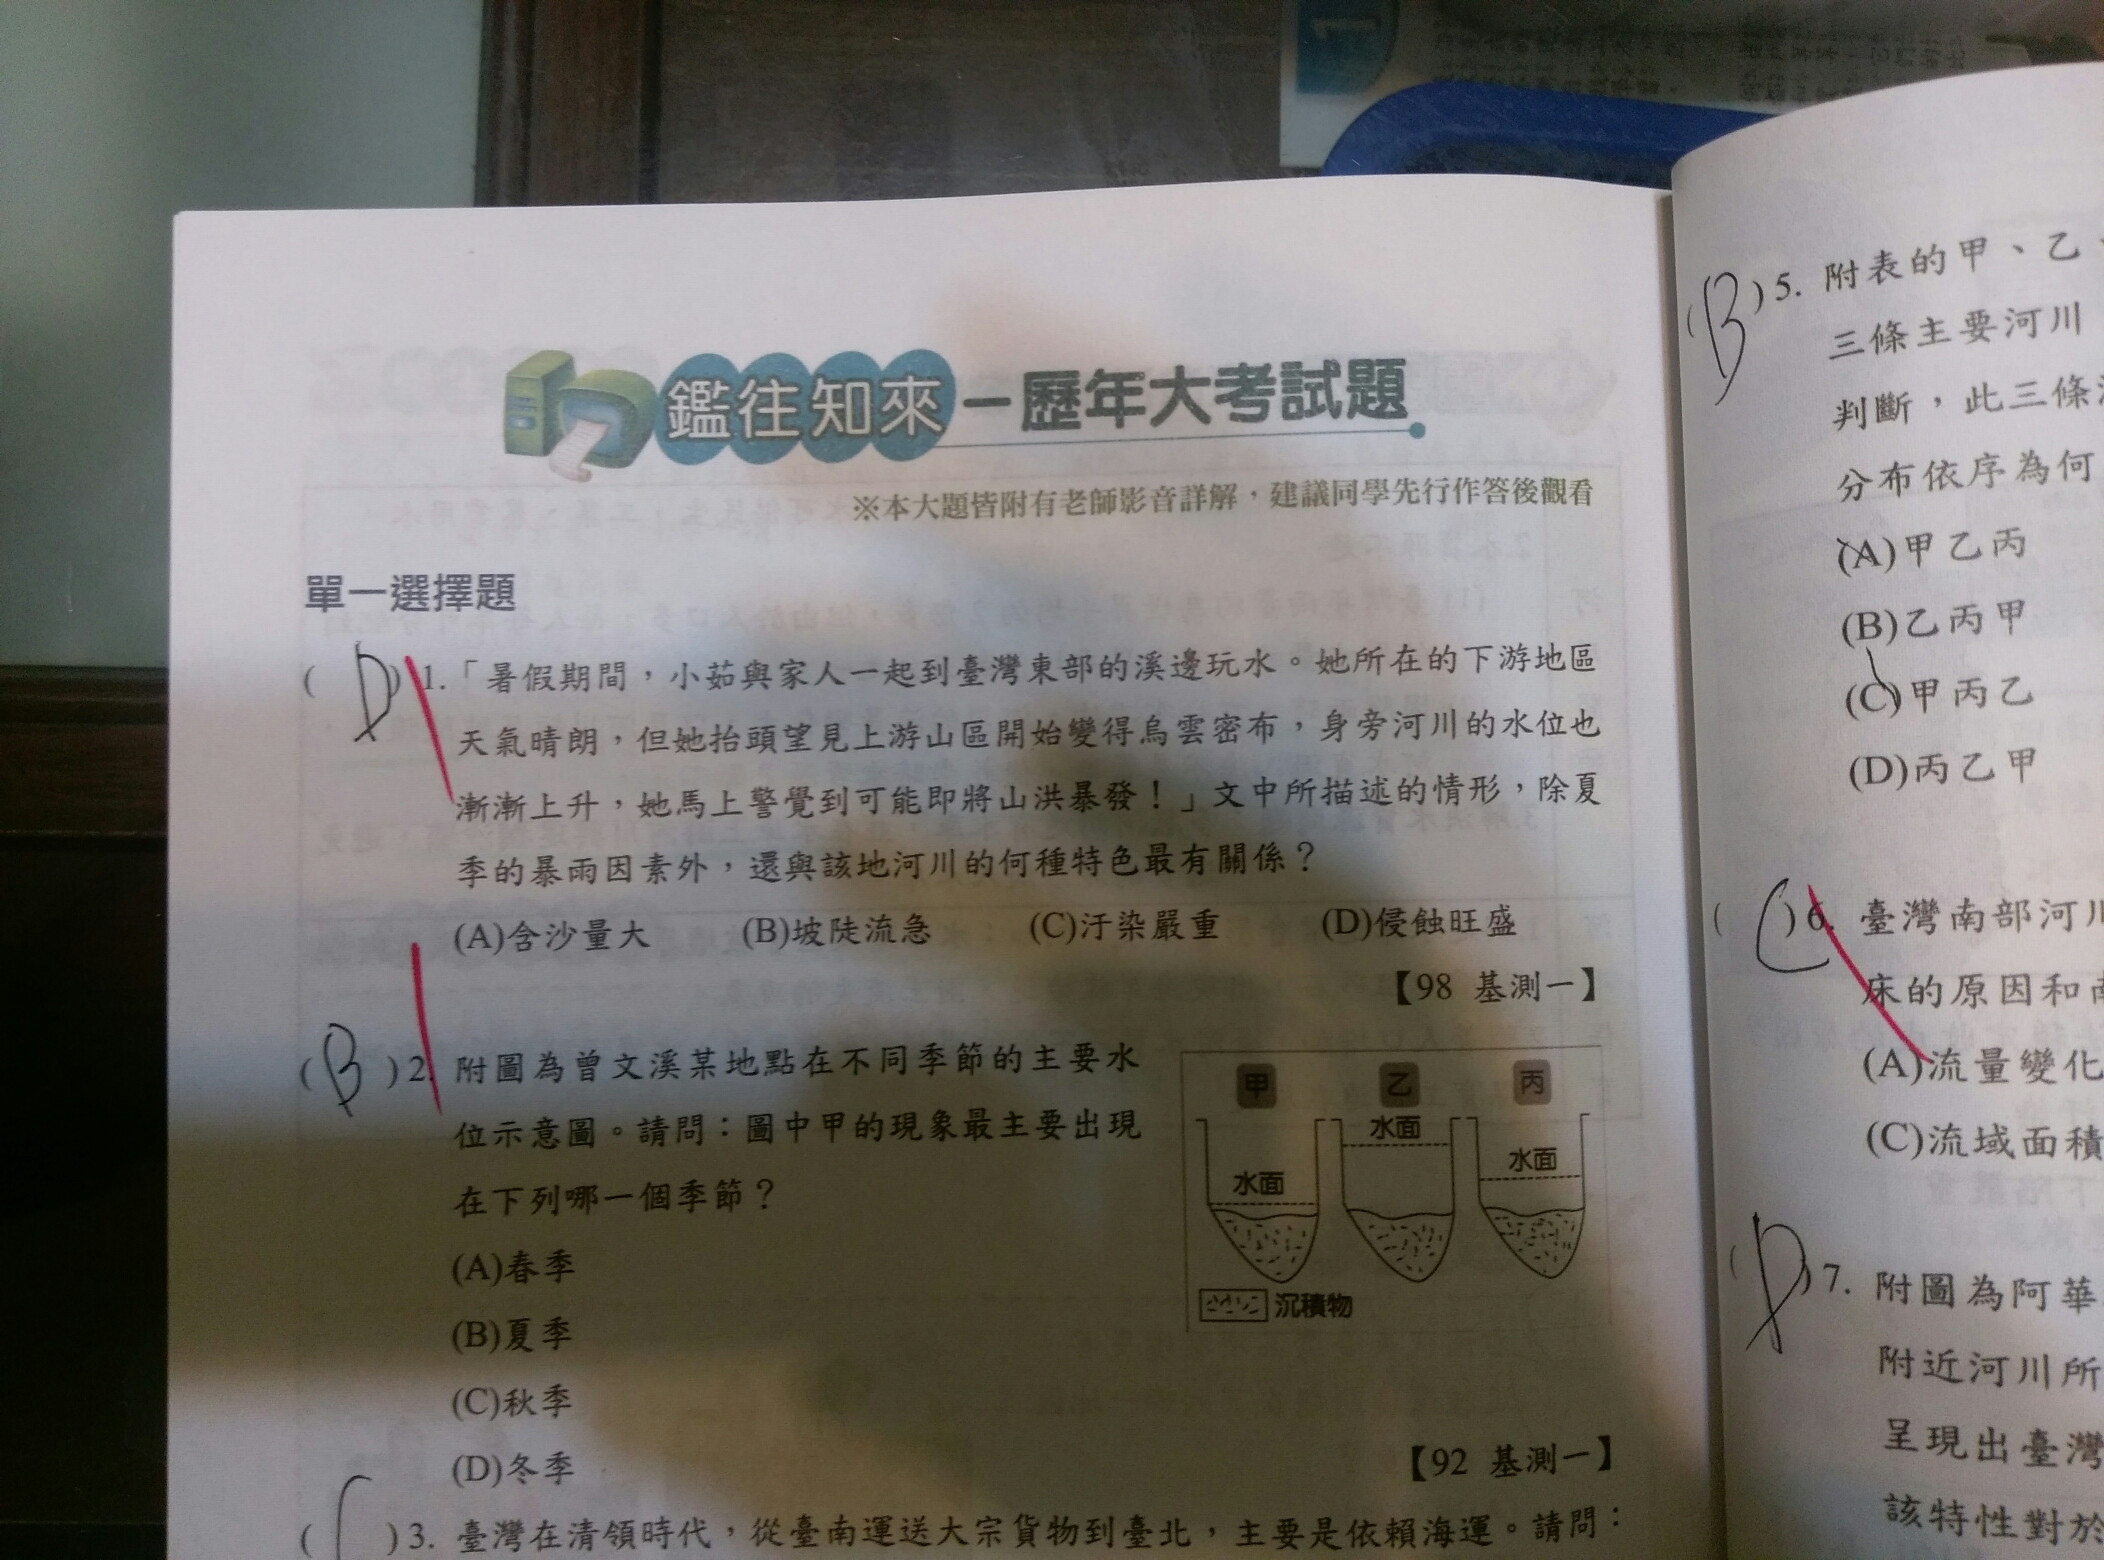 鑑往知來－歷年大考試題
※本大題皆附有老師影音詳解，建議同學先行作答後觀看
單一選擇題
( D ) 1.「暑假期間，小茹與家人一起到臺灣東部的溪邊玩水。她所在的下游地區
天氣晴朗，但她抬頭望見上游山區開始變得烏雲密布，身旁河川的水位也
漸漸上升，她馬上警覺到可能即將山洪暴發！」文中所描述的情形，除夏
季的暴雨因素外，還與該地河川的何種特色最有關係？
(A)含沙量大 (B)坡陡流急 (C)汙染嚴重 (D)侵蝕旺盛
【98 基測一】
( B ) 2. 附圖為曾文溪某地點在不同季節的主要水
位示意圖。請問：圖中甲的現象最主要出現
在下列哪一個季節？
(A)春季
(B)夏季
(C)秋季
(D)冬季
【92 基測一】
甲 乙 丙
水面 水面 水面
沉積物
( ) 3. 臺灣在清領時代，從臺南運送大宗貨物到臺北，主要是依賴海運。請問：
( B ) 5. 附表的甲、乙、
三條主要河川
判斷，此三條
分布依序為何
(A)甲乙丙
(B)乙丙甲
(C)甲丙乙
(D)丙乙甲
( C ) 6. 臺灣南部河川
床的原因和
(A)流量變化
(C)流域面積
( D ) 7. 附圖為阿華
附近河川所
呈現出臺灣
該特性對於
1